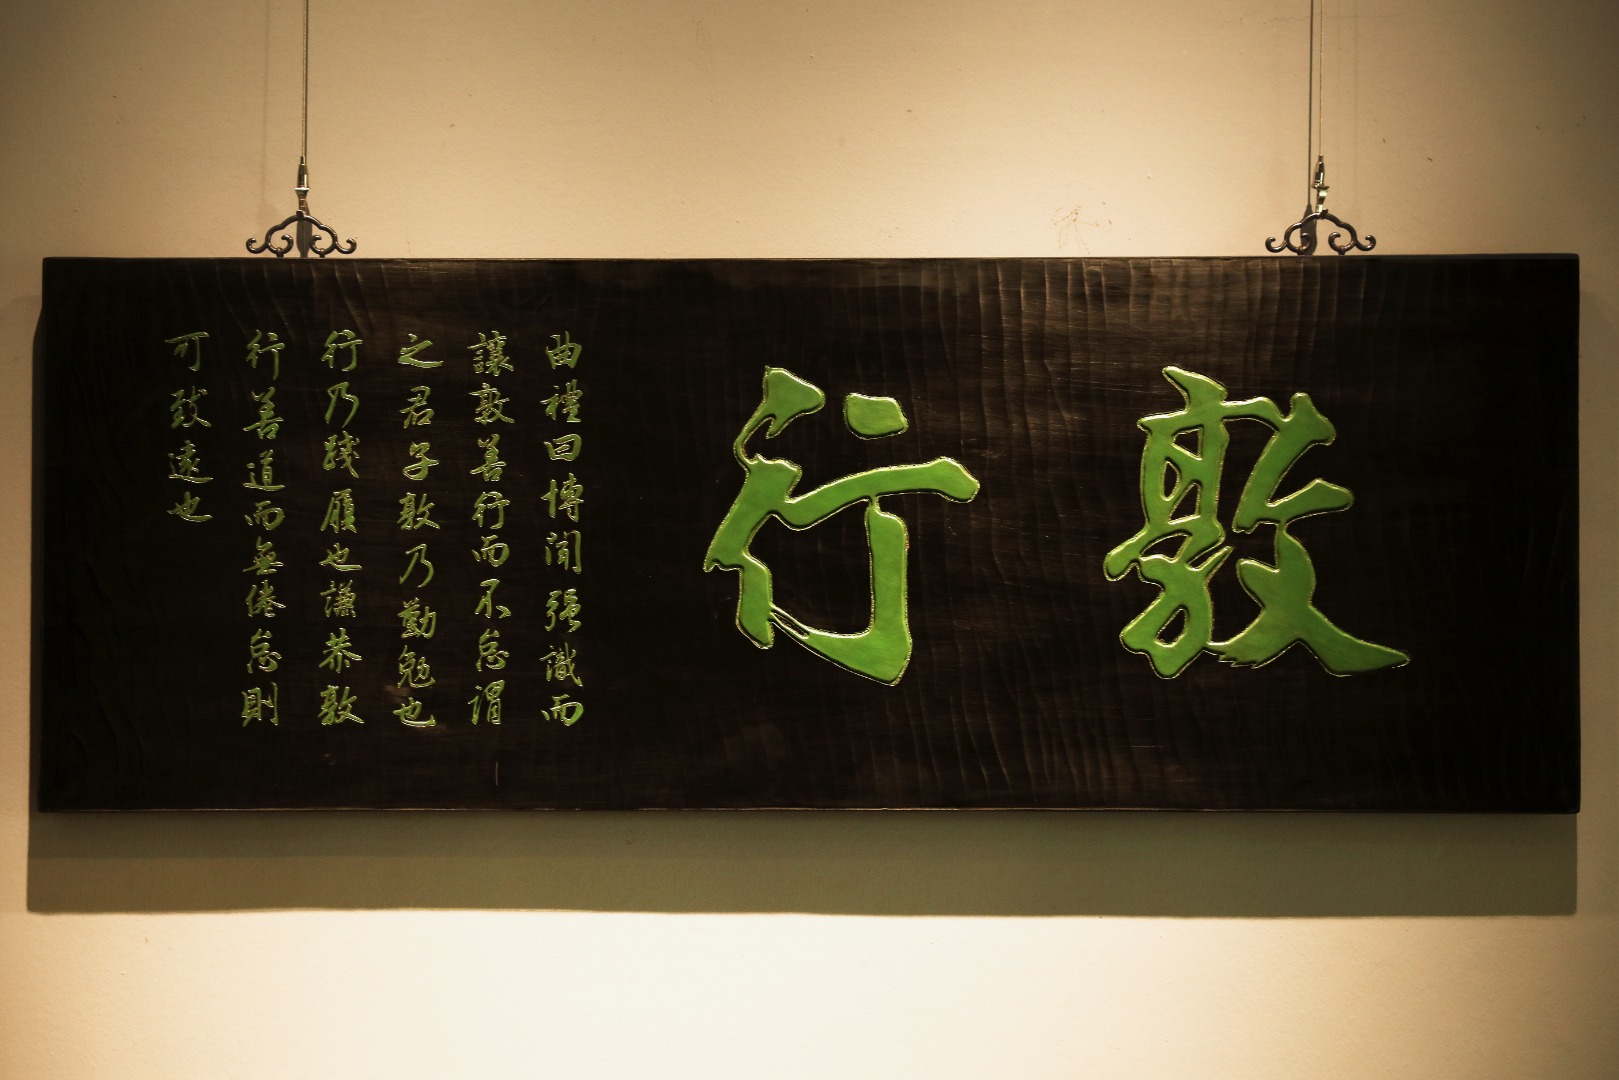 敦行
曲禮曰博聞強識而
讓敦善行而不怠謂
之君子敦乃勤勉也
行乃踐履也謙恭敦
行善道而無倦怠則
可致遠也